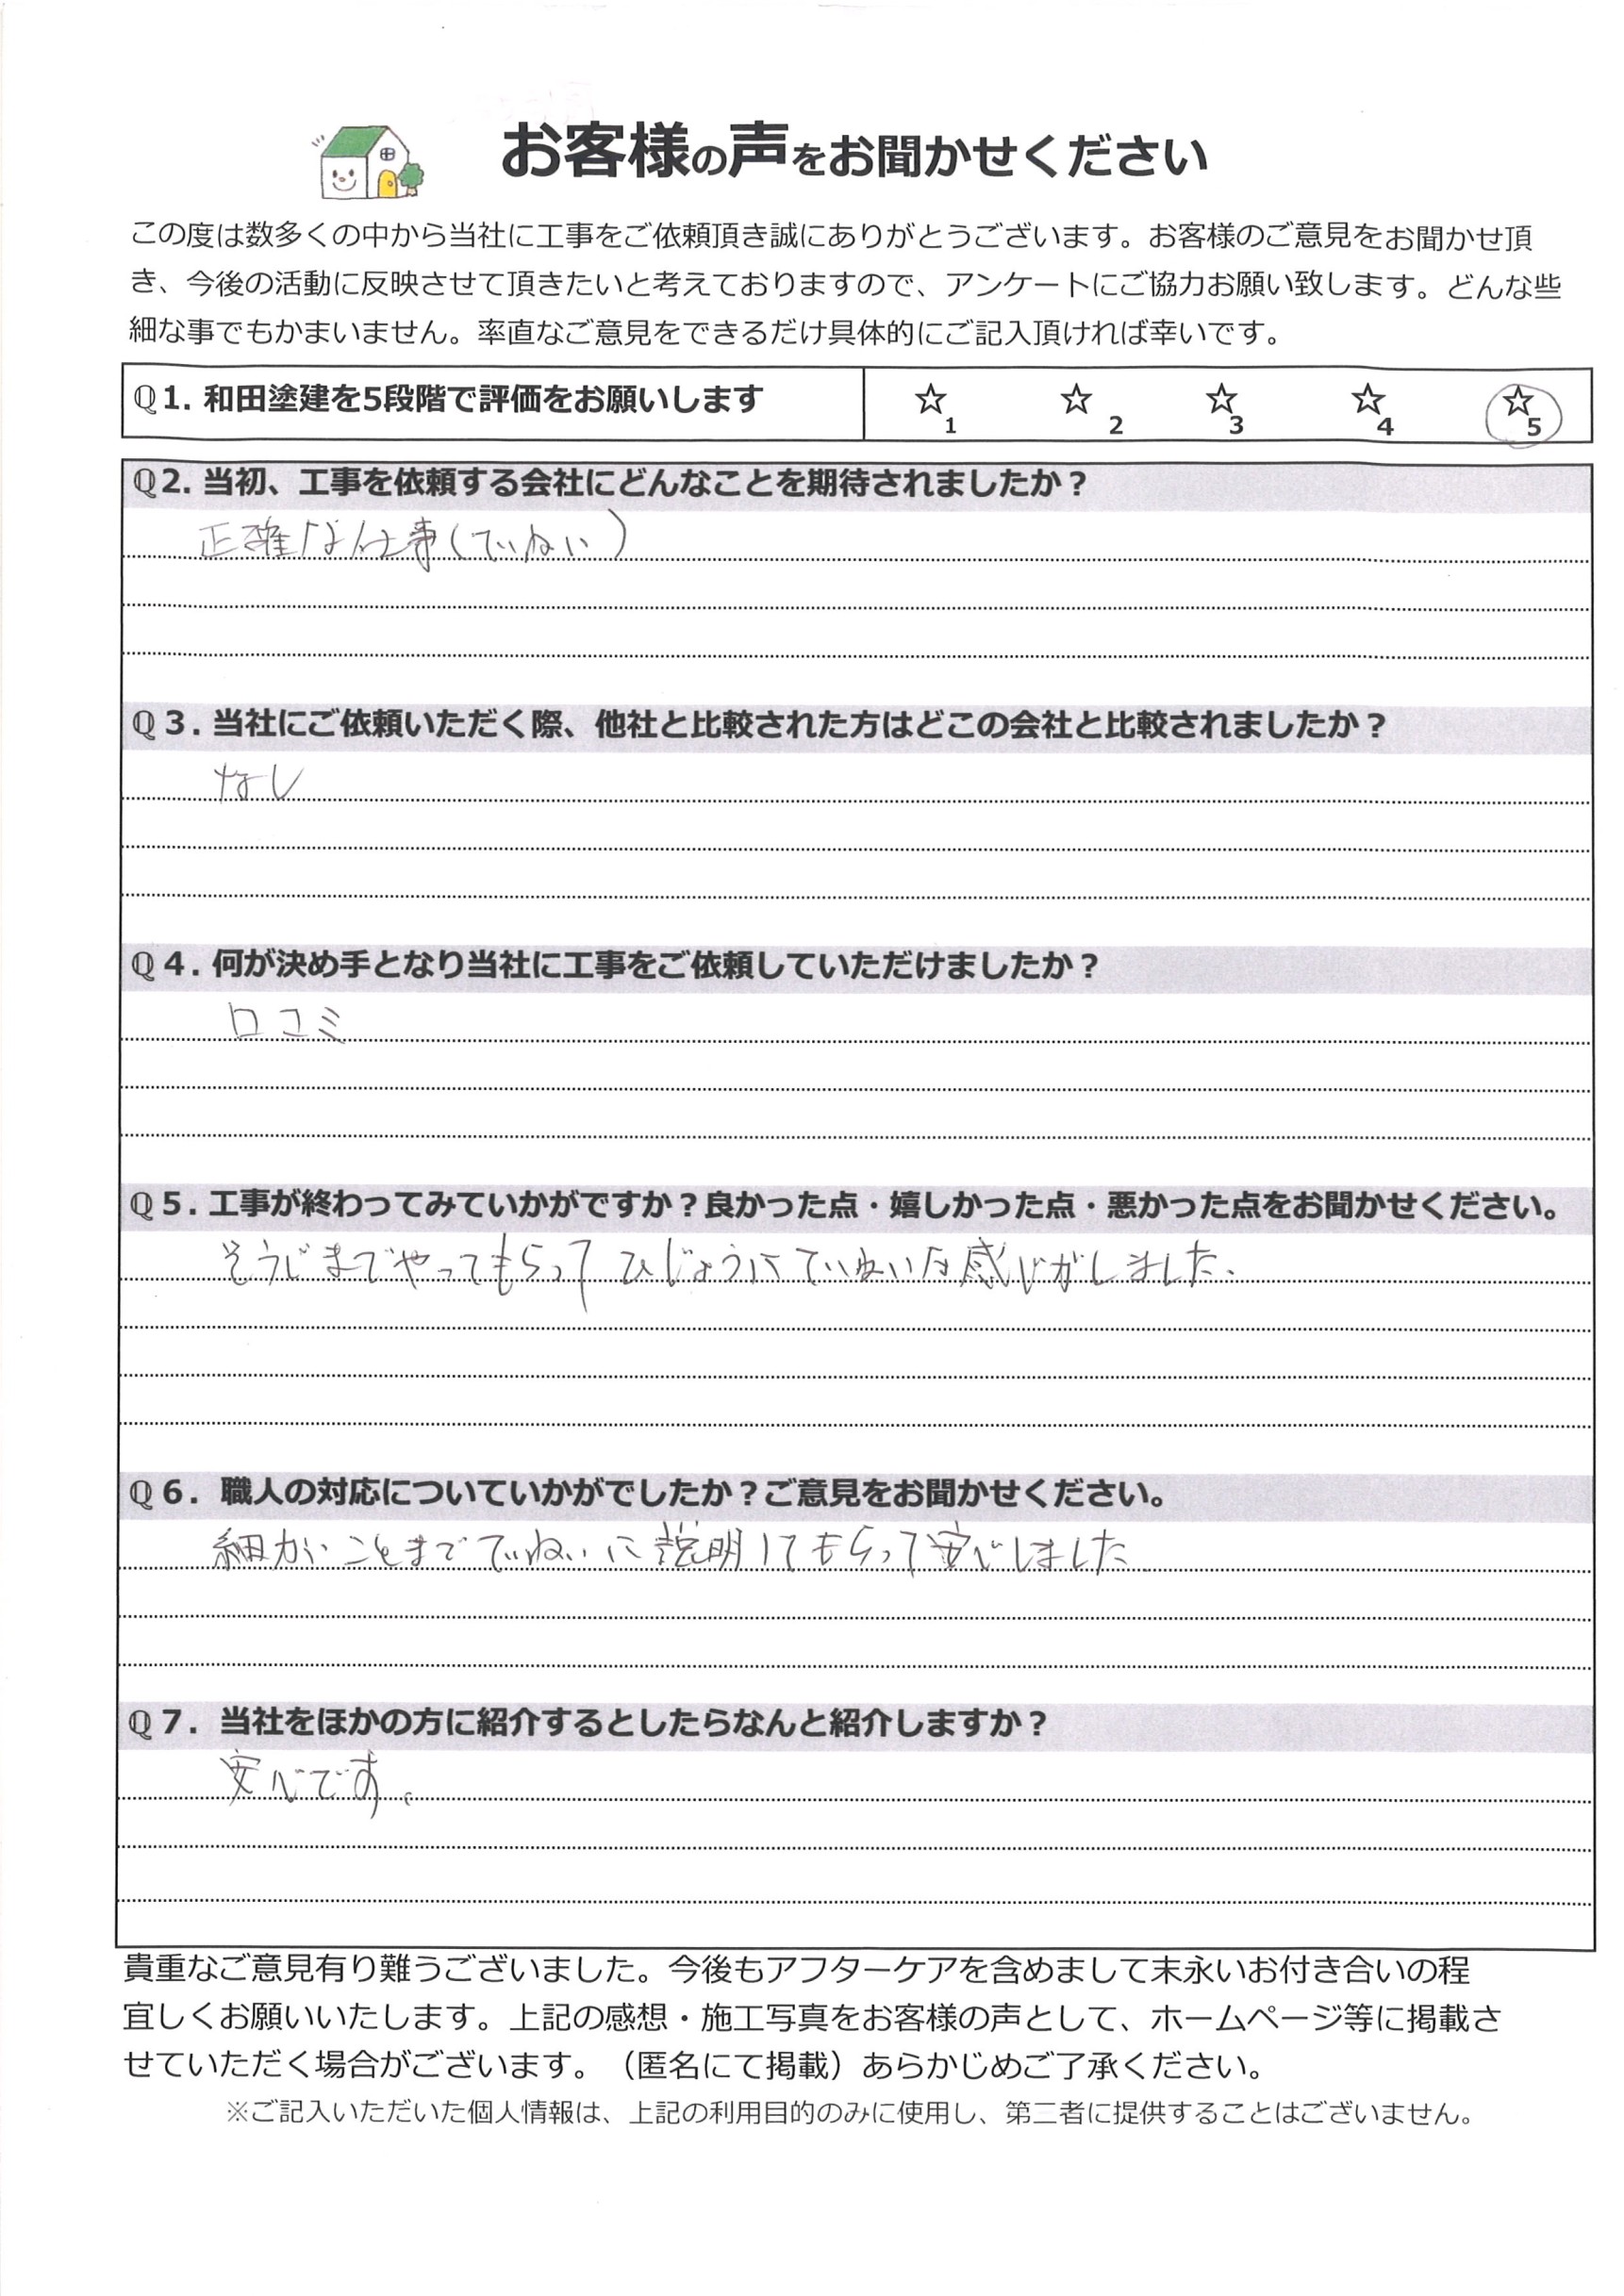 お客様の声をお聞かせください
この度は数多くの中から当社に工事をご依頼頂き誠にありがとうございます。お客様のご意見をお聞かせ頂
き、今後の活動に反映させて頂きたいと考えておりますので、アンケートにご協力お願い致します。どんな些
細な事でもかまいません。率直なご意見をできるだけ具体的にご記入頂ければ幸いです。
Q1. 和田塗建を5段階で評価をお願いします ☆1 ☆2 ☆3 ☆4 ☆5
Q2. 当初、工事を依頼する会社にどんなことを期待されましたか？
正確な仕事(ていねい)
Q3. 当社にご依頼いただく際、他社と比較された方はどこの会社と比較されましたか？
なし
Q4. 何が決め手となり当社に工事をご依頼していただけましたか？
口コミ
Q5. 工事が終わってみていかがですか？良かった点・嬉しかった点・悪かった点をお聞かせください。
そうじまでやってもらってひじょうにていねいな感じがしました。
Q6. 職人の対応についていかがでしたか？ご意見をお聞かせください。
細かいことまでていねいに説明してもらって安心しました
Q7. 当社をほかの方に紹介するとしたらなんと紹介しますか？
安心です。
貴重なご意見有り難うございました。今後もアフターケアを含めまして末永いお付き合いの程
宜しくお願いいたします。上記の感想・施工写真をお客様の声として、ホームページ等に掲載さ
せていただく場合がございます。（匿名にて掲載）あらかじめご了承ください。
※ご記入いただいた個人情報は、上記の利用目的のみに使用し、第三者に提供することはございません。